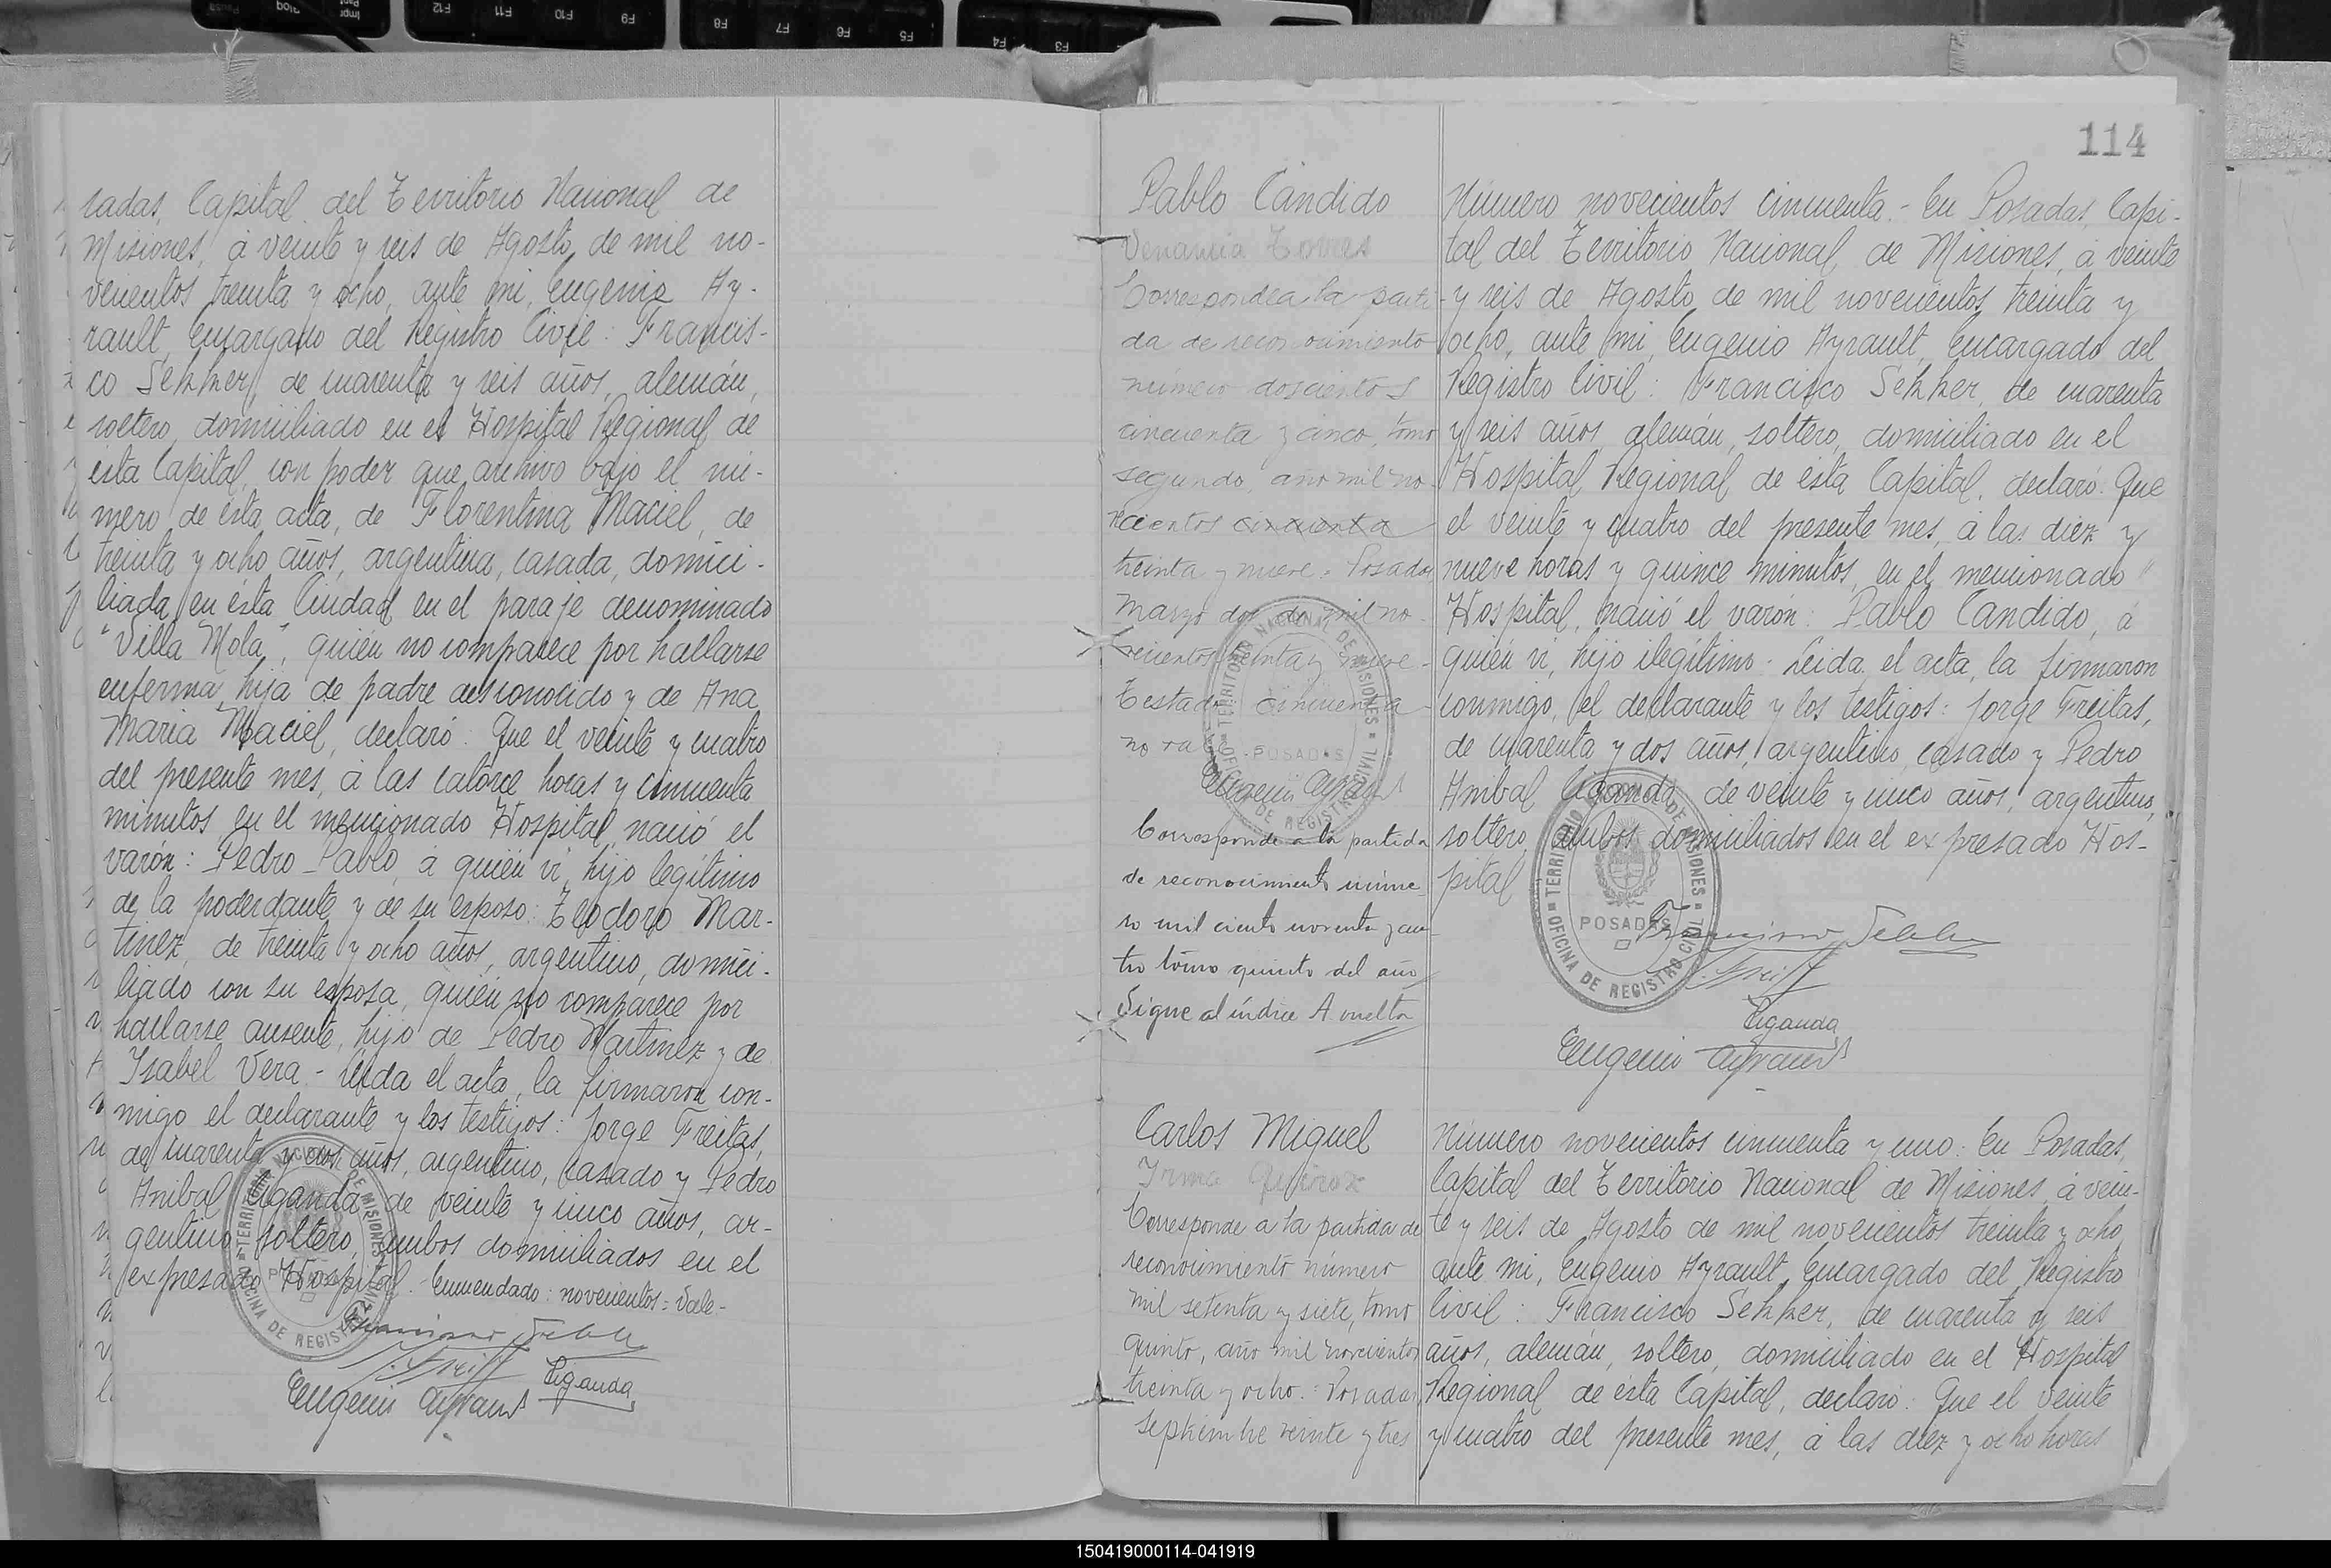 sadas, Capital del Territorio Nacional de
Misiones, á veinte y seis de Agosto, de mil no-
vecientos treinta y ocho, ante mi, Eugenio Ay-
rault, Encargado del Registro Civil: Francis-
co Sekker, de cuarenta y seis años, alemán,
soltero, domiciliado en el Hospital Regional de
ésta Capital, con poder que archivo bajo el nú-
mero de ésta acta, de Florentina Maciel, de
treinta y ocho años, argentina, casada, domici-
liada en ésta Ciudad en el paraje denominado
"Villa Mola", quién no comparece por hallarse
enferma, hija de padre desconocido y de Ana
Maria Maciel, declaró: Que el veinte y cuatro
del presente mes, á las catorce horas y cincuenta
minutos, en el mencionado Hospital, nació el
varón: Pedro Pablo, á quién vi, hijo legítimo
de la poderdante y de su esposo: Teodoro Mar-
tinez, de treinta y ocho años, argentino, domici-
liado con su esposa, quién no comparece por
hallarse ausente, hijo de Pedro Martinez y de
Isabel Vera.- Leida el acta, la firmaron con-
migo el declarante y los testigos: Jorge Freitas,
de cuarenta y dos años, argentino, casado y Pedro
Anibal Ciganda, de veinte y cinco años, ar-
gentino, soltero, ambos domiciliados en el
expresado Hospital. Enmendado: novecientos = Vale-
Francisco Sekker
J. Freitas
Ciganda
Eugenio Ayrault
114
Pablo Candido
Venancia Torres
Corresponde a la parti-
da de reconocimiento
número doscientos
cincuenta y cinco, tomo
segundo, año mil no-
vecientos cincuenta
treinta y nueve.- Posadas
Marzo dos de mil no-
vecientos treinta y nueve-
Testado: cincuenta-
no vale.-
Eugenio Ayrault
Corresponde a la partida
de reconocimiento núme
ro mil ciento noventa y cua
tro tomo quinto del año
Sigue al índice A vuelta
Número novecientos cincuenta.- En Posadas, Capi-
tal del Territorio Nacional de Misiones, á veinte
y seis de Agosto de mil novecientos treinta y
ocho, ante mi, Eugenio Ayrault, Encargado del
Registro Civil: Francisco Sekker, de cuarenta
y seis años, alemán, soltero, domiciliado en el
Hospital Regional de ésta Capital, declaró: Que
el veinte y cuatro del presente mes, á las diez y
nueve horas y quince minutos, en el mencionado
Hospital, nació el varón: Pablo Candido, á
quién vi, hijo ilegítimo.- Leida el acta, la firmaron
conmigo, el declarante y los testigos: Jorge Freitas,
de cuarenta y dos años, argentino, casado y Pedro
Anibal Ciganda, de veinte y cinco años, argentino,
soltero, ambos domiciliados en el expresado Hos-
pital
TERRITORIO NACIONAL DE MISIONES
POSADAS
OFICINA DE REGISTRO CIVIL
Francisco Sekker
J. Freitas
Ciganda
Eugenio Ayrault
Carlos Miguel
Irma Queiroz
Corresponde a la partida de
reconocimiento número
mil setenta y siete, tomo
quinto, año mil novecientos
treinta y ocho.- Posadas,
septiembre veinte y tres
Número novecientos cincuenta y uno: En Posadas,
Capital del Territorio Nacional de Misiones, á vein-
te y seis de Agosto de mil novecientos treinta y ocho,
ante mi, Eugenio Ayrault, Encargado del Registro
Civil: Francisco Sekker, de cuarenta y seis
años, alemán, soltero, domiciliado en el Hospital
Regional de ésta Capital, declaró: Que el veinte
y cuatro del presente mes, á las diez y ocho horas
150419000114-041919